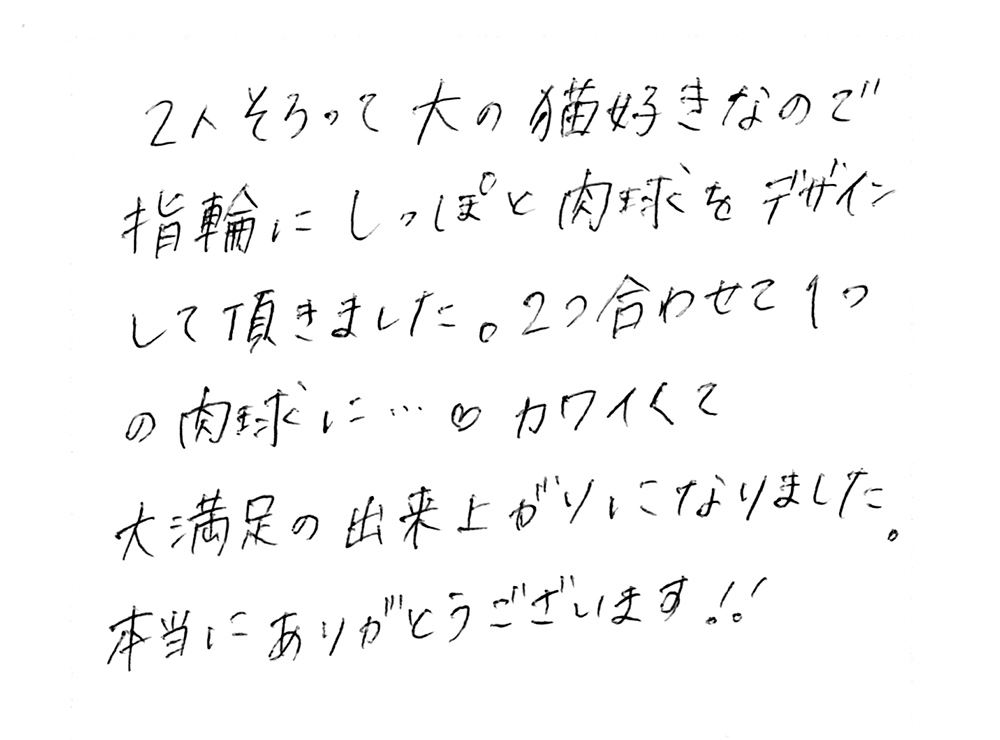 2人そろって大の猫好きなので
指輪にしっぽと肉球をデザイン
して頂きました。2つ合わせて1つ
の肉球に…♡カワイくて
大満足の出来上がりになりました。
本当にありがとうございます!!